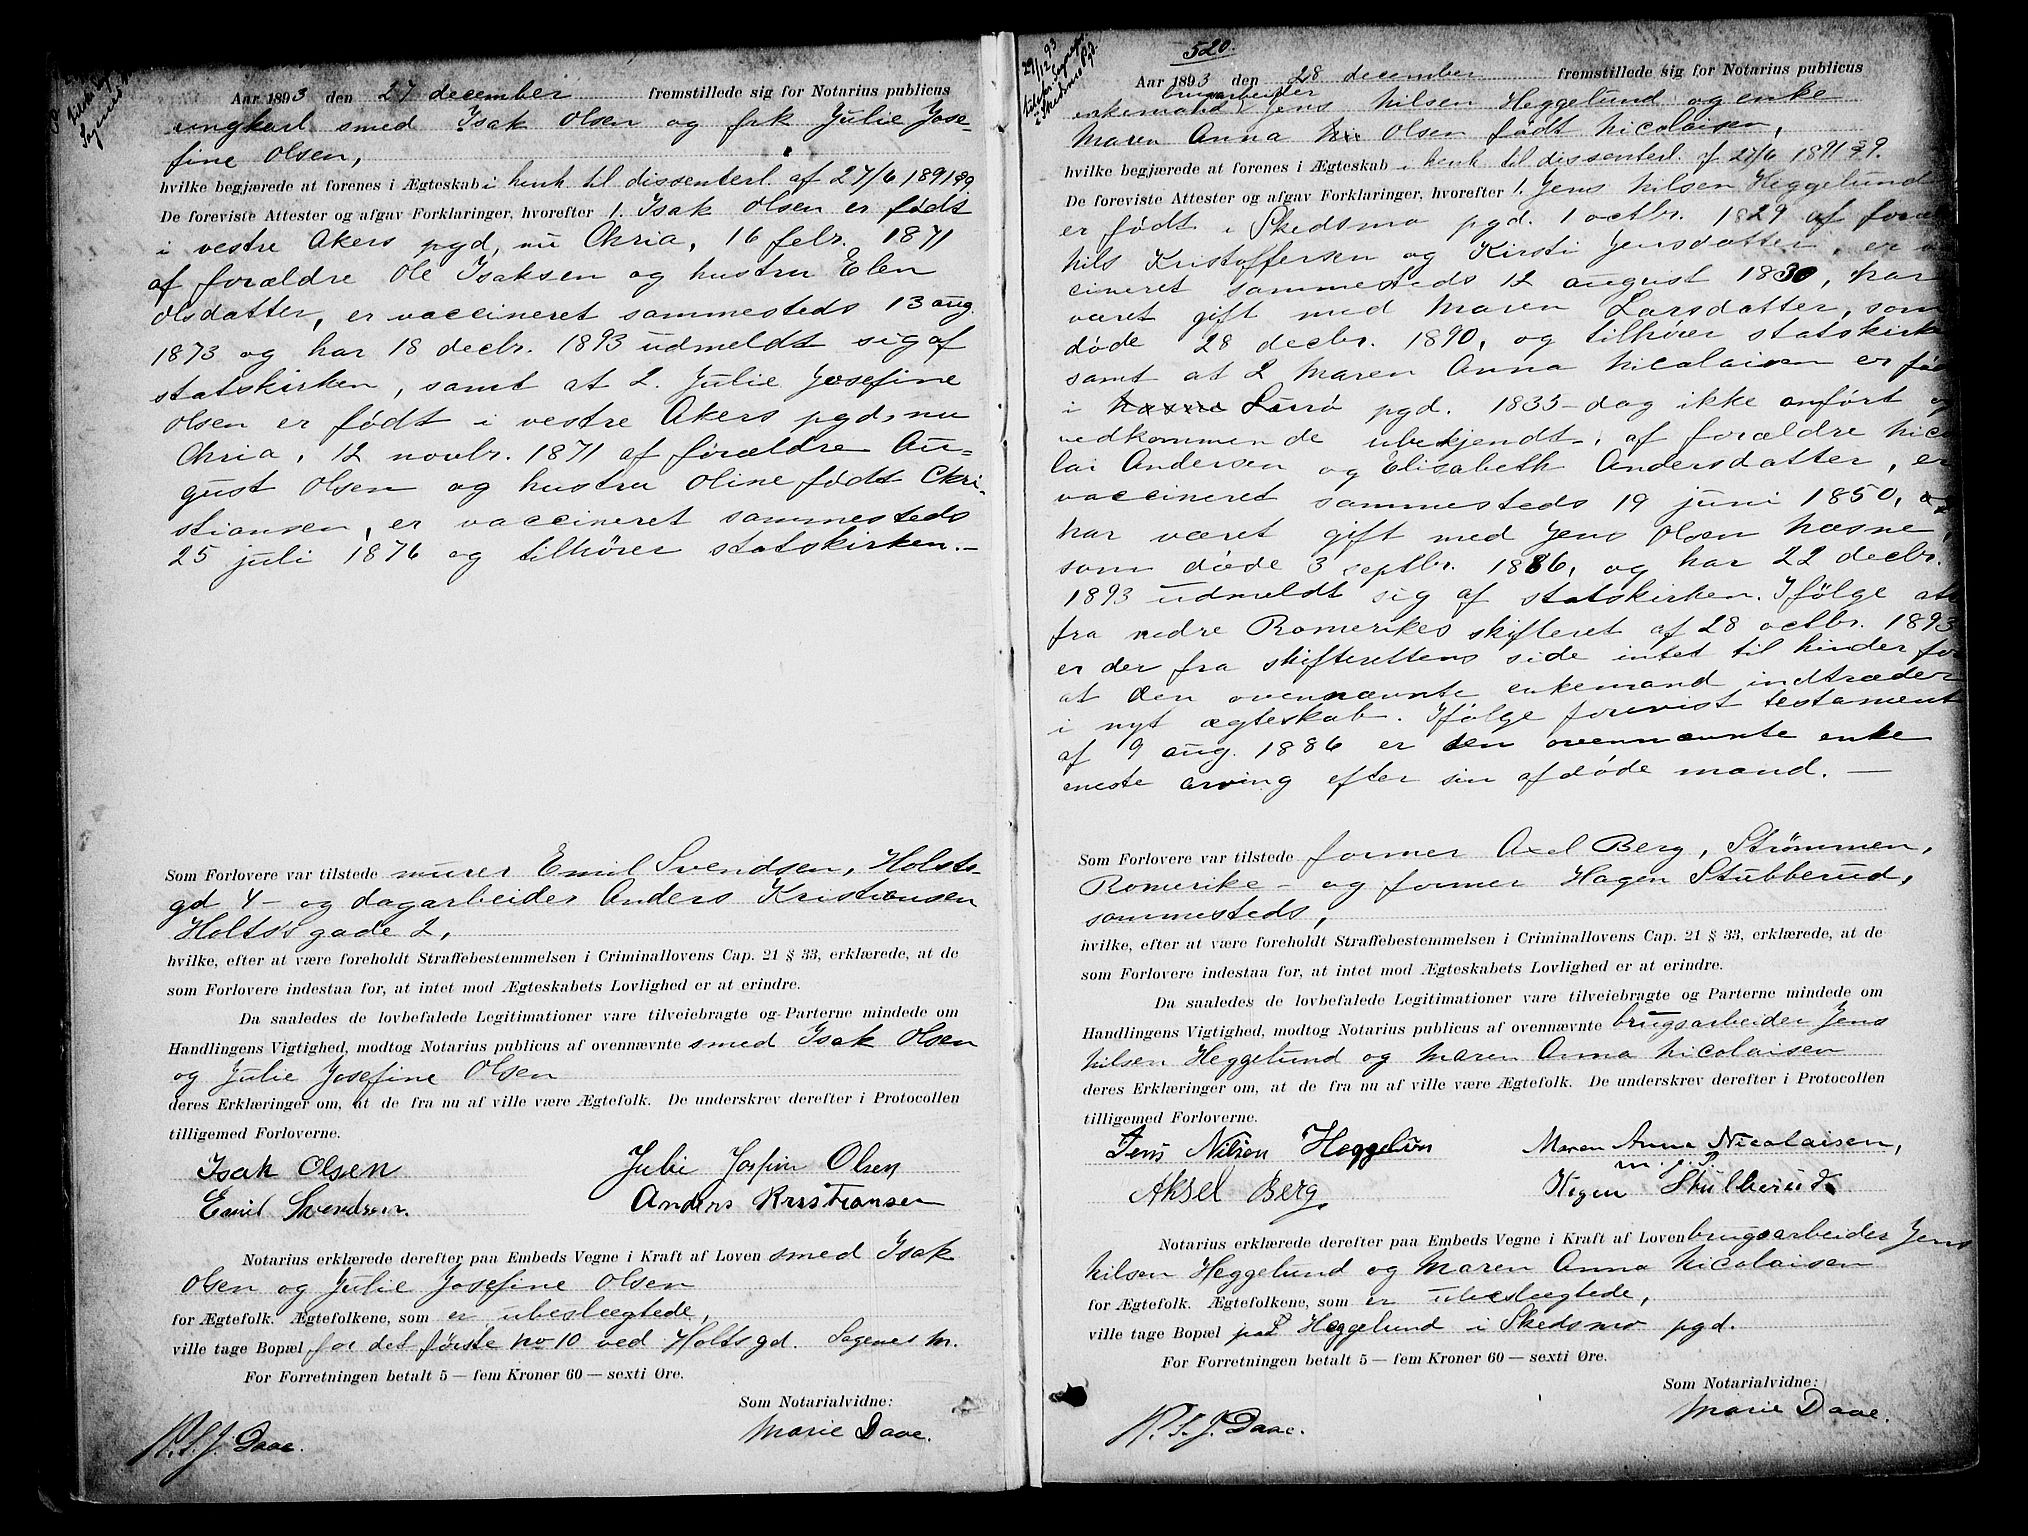 Aar 1893 den 27 december fremstillede sig for Notarius publicus
ungkarl smed Isak Olsen og frk Julie Jose-
fine Olsen,
hvilke begjærede at forenes i Ægteskab i henh til dissenterl. af 27/6 1891 § 9.
De foreviste Attester og afgav Forklaringer, hvorefter 1. Isak Olsen er født
i vestre Akers pgd, nu Chria, 16 febr. 1871
af forældre Ole Isaksen og hustru Elen
Olsdatter, er vaccineret sammesteds 13 aug.
1873 og har 18 decbr. 1893 udmeldt sig af
statskirken, samt at 2. Julie Josefine
Olsen er født i vestre Akers pgd, nu
Chria, 12 novbr. 1871 af forældre Au-
gust Olsen og hustru Oline født Chri-
stiansen, er vaccineret sammesteds
25 juli 1876 og tilhører statskirken.-
Som Forlovere var tilstede murer Emil Svendsen, Holsts
gd 4 - og dagarbeider Anders Kristiansen
Holts's gade 2,
hvilke, efter at være foreholdt Straffebestemmelsen i Criminallovens Cap. 21 § 33, erklærede, at de
som Forlovere indestaa for, at intet mod Ægteskabets Lovlighed er at erindre.
Da saaledes de lovbefalede Legitimationer vare tilveiebragte og Parterne mindede om
Handlingens Vigtighed, modtog Notarius publicus af ovennævnte smed Isak Olsen
og Julie Josefine Olsen
deres Erklæringer om, at de fra nu af ville være Ægtefolk. De underskrev derefter i Protocollen
tilligemed Forloverne.
Isak Olsen Julie Josfine Olsen
Emil Svendsen. Anders Kristiansen
Notarius erklærede derefter paa Embeds Vegne i Kraft af Loven smed Isak
Olsen og Julie Josefine Olsen
for Ægtefolk. Ægtefolkene, som er ubeslægtede,
ville tage Bopæl for det første no 10 ved Holts gd. Sagenes m.
For Forretningen betalt 5 — fem Kroner 60 — sexti Øre.
Som Notarialvidne:
Marie Daae.
N. S. J. Daae.
29/12 93
520.
Aar 1893 den 28 december fremstillede sig for Notarius publicus
brugsarbeider
enkemand Jens Nilsen Heggelund og enke
Maren Anna Olsen født Nicolaisen,
hvilke begjærede at forenes i Ægteskab i henh til dissenterl. af 27/6 1891 § 9.
De foreviste Attester og afgav Forklaringer, hvorefter 1. Jens Nilsen Heggelund
er født i Skedsmo pgd. 1 octbr. 1829 af foræl
Nils Kristoffersen og Kirsti Jensdatter, er va
cineret sammesteds 12 august 1830, har
været gift med Maren Larsdatter, som
døde 28 decbr. 1890, og tilhører statskirken
samt at 2 Maren Anna Nicolaisen er fød
i pgd. 1833 - dag ikke anført og
vedkommende ubekjendt -, af forældre Nico
lai Andersen og Elisabeth Andersdatter, er
vaccineret sammesteds 19 juni 1850,
har været gift med Jens Olsen Næsne,
som døde 3 septbr. 1886, og har 22 decbr.
1893 udmeldt sig af statskirken. Ifølge att
fra nedre Romerikes skifteret af 28 octbr. 1893
er der fra skifterettens side intet til hinder for
at den ovennævnte enkemand indtræder
i nyt ægteskab. Ifølge forevist testament
af 9 aug. 1886 er den ovennævnte enke
eneste arving efter sin afdøde mand. —
Som Forlovere var tilstede former Axel Berg, Strømmen,
Romerike - og former Hagen Stubberud,
sammesteds,
hvilke, efter at være foreholdt Straffebestemmelsen i Criminallovens Cap. 21 § 33, erklærede, at de
som Forlovere indestaa for, at intet mod Ægteskabets Lovlighed er at erindre.
Da saaledes de lovbefalede Legitimationer vare tilveiebragte og Parterne mindede om
Handlingens Vigtighed, modtog Notarius publicus af ovennævnte brugsarbeider Jens
Nilsen Heggelund og Maren Anna Nicolaisen
deres Erklæringer om, at de fra nu af ville være Ægtefolk. De underskrev derefter i Protocollen
tilligemed Forloverne.
Jens Nilsen Heggelun Maren Anna Nicolaisen,
m. f. P.
Aksel Berg. Hagen Stubberud.
Notarius erklærede derefter paa Embeds Vegne i Kraft af Loven brugsarbeider Jens
Nilsen Heggelund og Maren Anna Nicolaisen
for Ægtefolk. Ægtefolkene, som er ubeslægtede,
ville tage Bopæl paa Heggelund i Skedsmo pgd.
For Forretningen betalt 5 — fem Kroner 60 — sexti Øre.
Som Notarialvidne:
Marie Daae.
N. S. J. Daae.